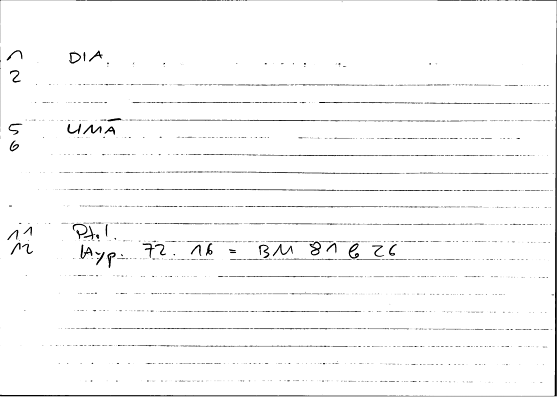 1 DIA
2
5 UMĀ
6
11 Ptol.
12 Hyp. 72.16 = BM 81 b 26